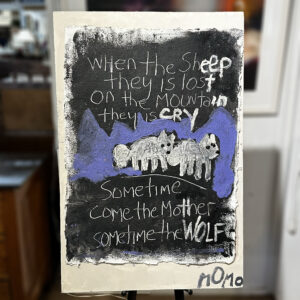 When the Sheep
they is lost
on the Mountain
they is CRY
Sometime
come the Mother
sometime the WOLF
MOMO